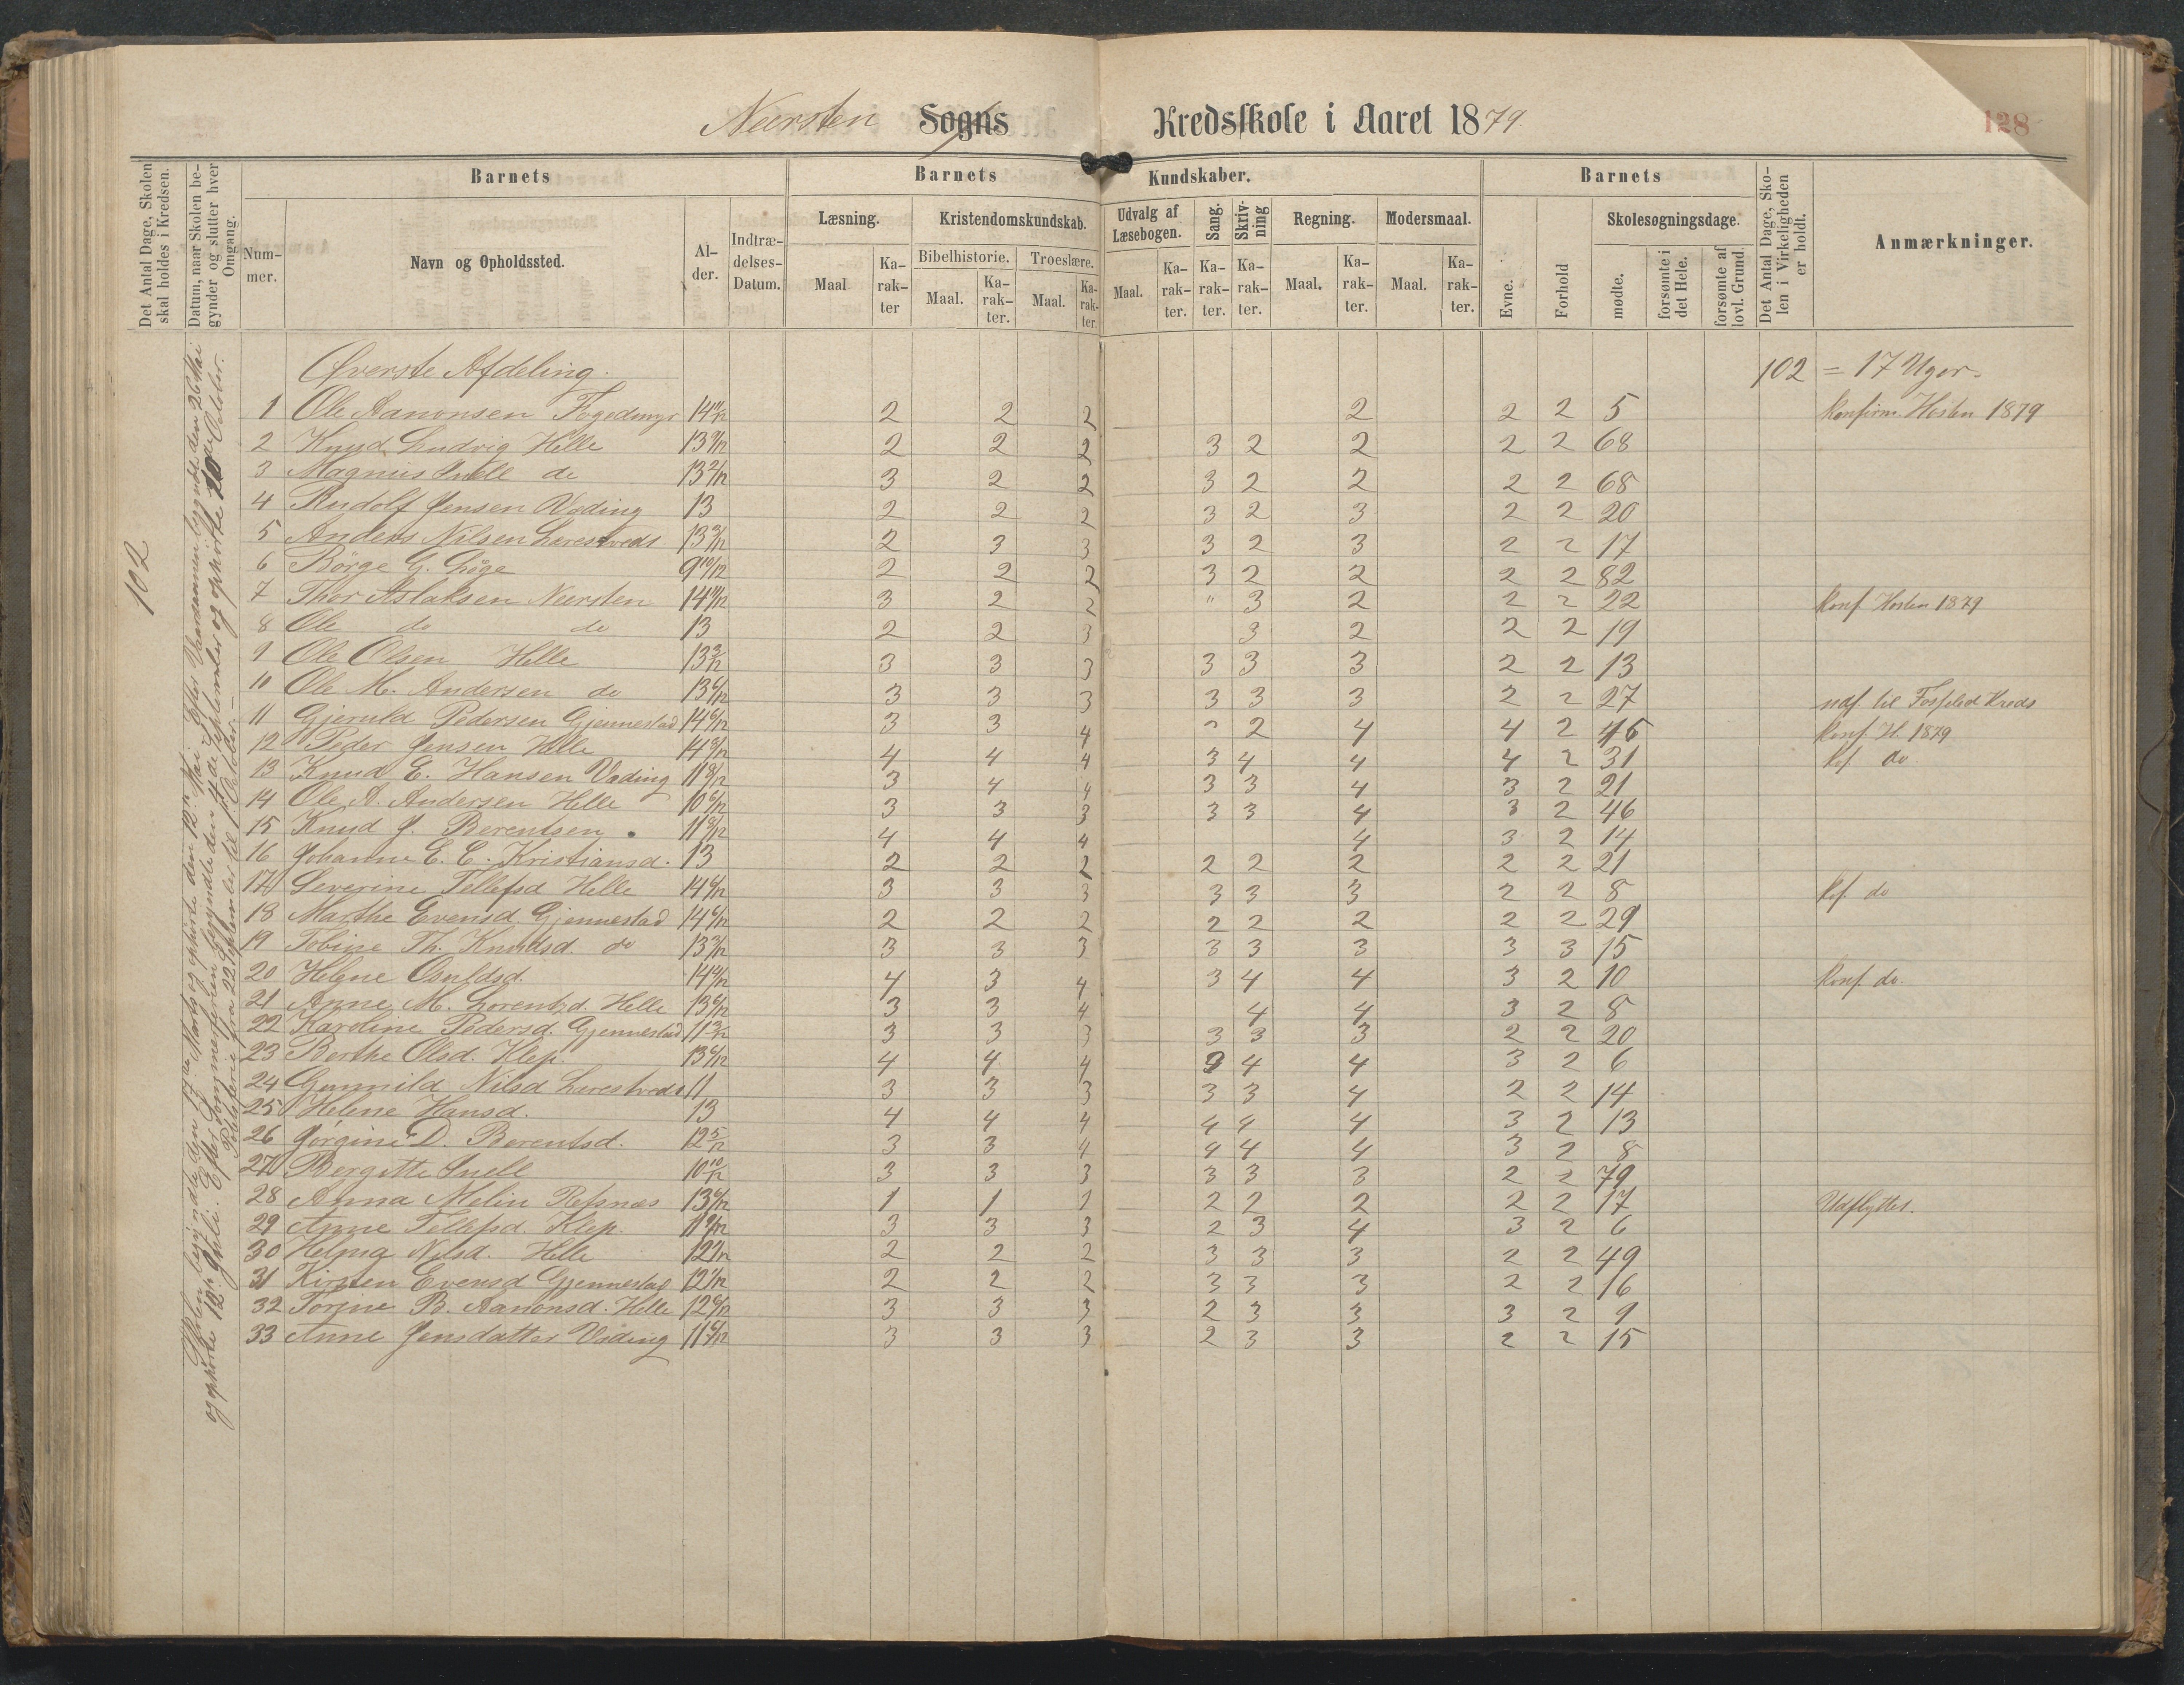 Neersten Sogns Kredsskole i Aaret 1879. 128
Det Antal Dage, Skolen skal holdes i Kredsen.
Datum, naar Skolen begynder og slutter hver Omgang.
Barnets
Nummer.
Navn og Opholdssted.
Alder.
Indtrædelses-Datum.
Barnets Kundskaber.
Læsning.
Maal
Karakter
Kristendomskundskab.
Bibelhistorie.
Maal.
Karakter.
Troeslære.
Maal.
Karakter.
Udvalg af Læsebogen.
Maal.
Karakter.
Sang.
Karakter.
Skrivning
Karakter.
Regning.
Maal.
Karakter.
Modersmaal.
Maal.
Karakter.
Barnets
Evne.
Forhold
Skolesøgningsdage.
mødte.
forsømte i det Hele.
forsømte af lovl. Grund
Det Antal Dage, Skolen i Virkeligheden er holdt.
Anmærkninger.
102
Øverste Afdeling. 102 = 17 Uger.
1 Ole Aanonsen Fogedmyr 14 11/12 2 2 2 2 2 2 5 Konfirm. Hosten 1879
2 Knud Ludvig Helle 13 9/12 2 2 2 3 2 2 2 2 68
3 Magnus Snell do 13 2/12 3 2 2 3 2 2 2 2 68
4 Rudolf Jensen Vading 13 2 2 2 3 2 3 2 2 20
5 Anders Nilsen Larestveds 13 3/12 2 3 3 3 2 3 2 2 17
6 Børge G. Løge 9 10/12 2 2 2 3 2 2 2 2 82
7 Thor Aslaksen Neersten 14 11/12 3 2 2 " 3 2 2 2 22 Konf. Hosten 1879
8 Ole do do 13 2 2 3 3 2 2 2 19
9 Ole Olsen Helle 13 3/12 3 3 3 3 3 3 2 2 13
10 Ole M. Andersen do 13 6/12 3 3 3 3 3 3 2 2 27 udf. til Kreds
11 Gjeruld Pedersen Gjennestad 14 6/12 3 3 4 2 4 4 2 46 Konf. H. 1879
12 Peder Jensen Helle 14 8/12 4 4 4 3 4 4 4 2 31 Kf. do.
13 Knud E. Hansen Vading 11 8/12 3 4 4 3 3 4 3 2 21
14 Ole A. Andersen Helle 10 6/12 3 3 3 3 3 4 3 2 46
15 Knud J. Berentsen 11 8/12 4 4 4 4 3 2 14
16 Johanne E. C. Kristiansd. 13 2 2 2 2 2 2 2 2 21
17 Severine Tellefsd Helle 14 6/12 3 3 3 3 3 3 2 2 8 Kf. do
18 Marthe Evensd. Gjennestad 14 6/12 2 2 2 2 2 2 2 2 29
19 Tobine Th. Knudsd. do 13 3/12 3 3 3 3 3 3 3 3 15
20 Helene Osuldsd. 14 9/12 4 3 4 3 4 4 3 2 10 Konf. do.
21 Anne M. Lorentzd. Helle 13 6/12 3 3 4 4 4 3 2 8
22 Karoline Pedersd. Gjennestad 11 3/12 3 3 3 3 3 3 2 2 20
23 Berthe Olsd. Klep. 13 6/12 4 4 4 4 4 3 2 6
24 Gunnild Nilsd Larestveds 11 3 3 3 3 3 4 2 2 14
25 Helene Hansd. 13 4 4 4 4 4 4 3 2 13
26 Jørgine D. Berentsd. 12 5/12 3 3 4 4 4 4 3 2 8
27 Bergitte Snell 10 10/12 3 3 3 3 3 3 2 2 79
28 Anna Melin Refsnæs 13 6/12 1 1 1 2 2 2 2 2 17 Udflyttet.
29 Anne Tellefsd. Klep. 11 9/12 3 3 3 2 3 4 3 2 6
30 Helma Nilsd. Helle 12 1/12 2 2 2 3 3 3 2 2 49
31 Kirsten Evensd Gjennestad 12 1/12 2 2 2 3 3 3 2 2 16
32 Torine B. Aanonsd. Helle 12 6/12 3 3 3 2 3 3 3 2 9
33 Anne Jensdatter Vading 11 6/12 3 3 3 2 3 3 2 2 15